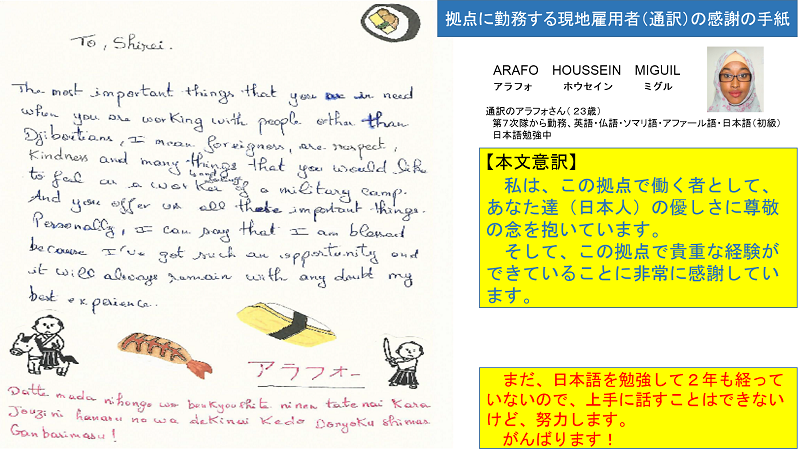 To, Shirei.
The most important things that you are in need
when you are working with people other than
Djiboutians, I mean foreigners, are respect,
kindness and many things that you would like
to feel as a worker of a military camp.
And you offer us all these important things.
Personally, I can say that I am blessed
because I've got such an opportunity and
it will always remain with any doubt my
best experience.
アラフォー
Datte mada nihongo wo benkyoushite ninen tate nai Kara
Jouzu ni hanasu no wa deKinai Kedo Doryoku shimasu
Ganbarimasu!
拠点に勤務する現地雇用者(通訳)の感謝の手紙
ARAFO HOUSSEIN MIGUIL
アラフォ ホウセイン ミグル
通訳のアラフォさん(23歳)
第7次隊から勤務、英語・仏語・ソマリ語・アファール語・日本語(初級)
日本語勉強中
【本文意訳】
私は、この拠点で働く者として、
あなた達(日本人)の優しさに尊敬
の念を抱いています。
そして、この拠点で貴重な経験が
できていることに非常に感謝してい
ます。
まだ、日本語を勉強して2年も経って
いないので、上手に話すことはできない
けど、努力します。
がんばります!